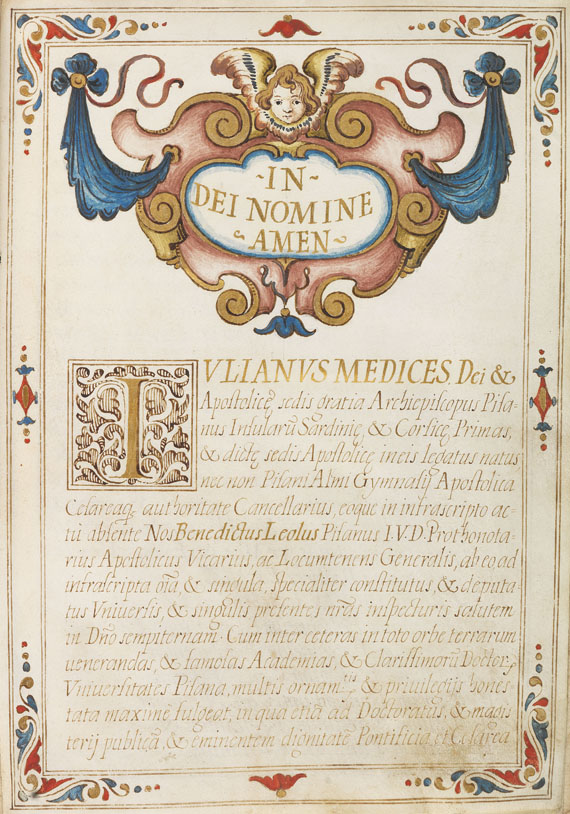 ~IN~
DEI NOMINE
~AMEN~
IVLIANVS MEDICES, Dei &
Apostolicę sedis gratia Archiepiscopus Pisa-
nus Insularũ Sardinię, & Corsicę Primas,
& dictę sedis Apostolicę in eis legatus natus
nec non Pisani Almi Gymnasij Apostolica
Cesareaq; authoritate Cancellarius, eoque in infrascripto ac-
tũ absente Nos Benedictus Leolus Pisanus I.V.D. Prothonota-
rius Apostolicus Vicarius, ac Locumtenens Generalis, ab eo ad
infrascripta oĩa, & singula, specialiter constitutus, & deputa
tus Vniuersis, & singulis presentes nr̃as inspecturis salutem
in Dño sempiternam. Cum inter ceteras in toto orbe terrarum
uenerandas, & famosas Academias, & Clarissimorũ Doctorȝ
Vniuersitates Pisana, multis ornam.tis, & priuilegijs hones
tata maximè fulgeat, in qua etiã ad Doctoratus, & magis
terij publicã, & eminentem dignitatẽ Pontificia, et Cesarea